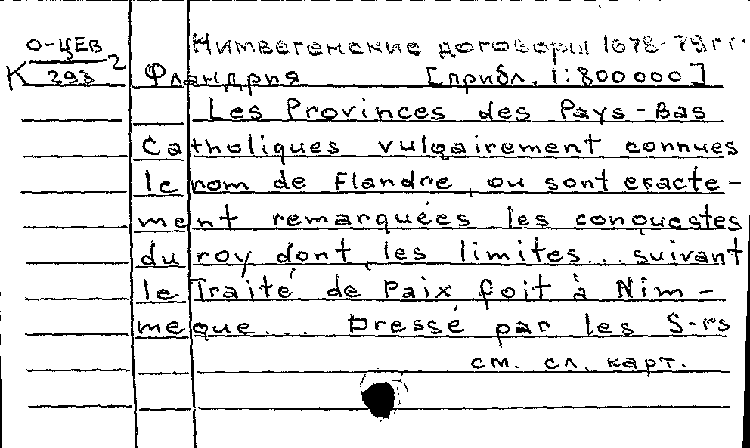 О-ЦЕВ
К 2
293
Нимвегенские договоры 1678-79 гг.
Фландрия [прибл. 1:800000]
Les Provinces des Pays-Bas
Catholiques vulgairement connues
le nom de Flandre, ou sont exacte-
ment remarquées les conquestes
du roy dont les limites... suivant
le Traité de Paix foit à Nim-
meque... Dressé par les S-rs
см. сл. карт.